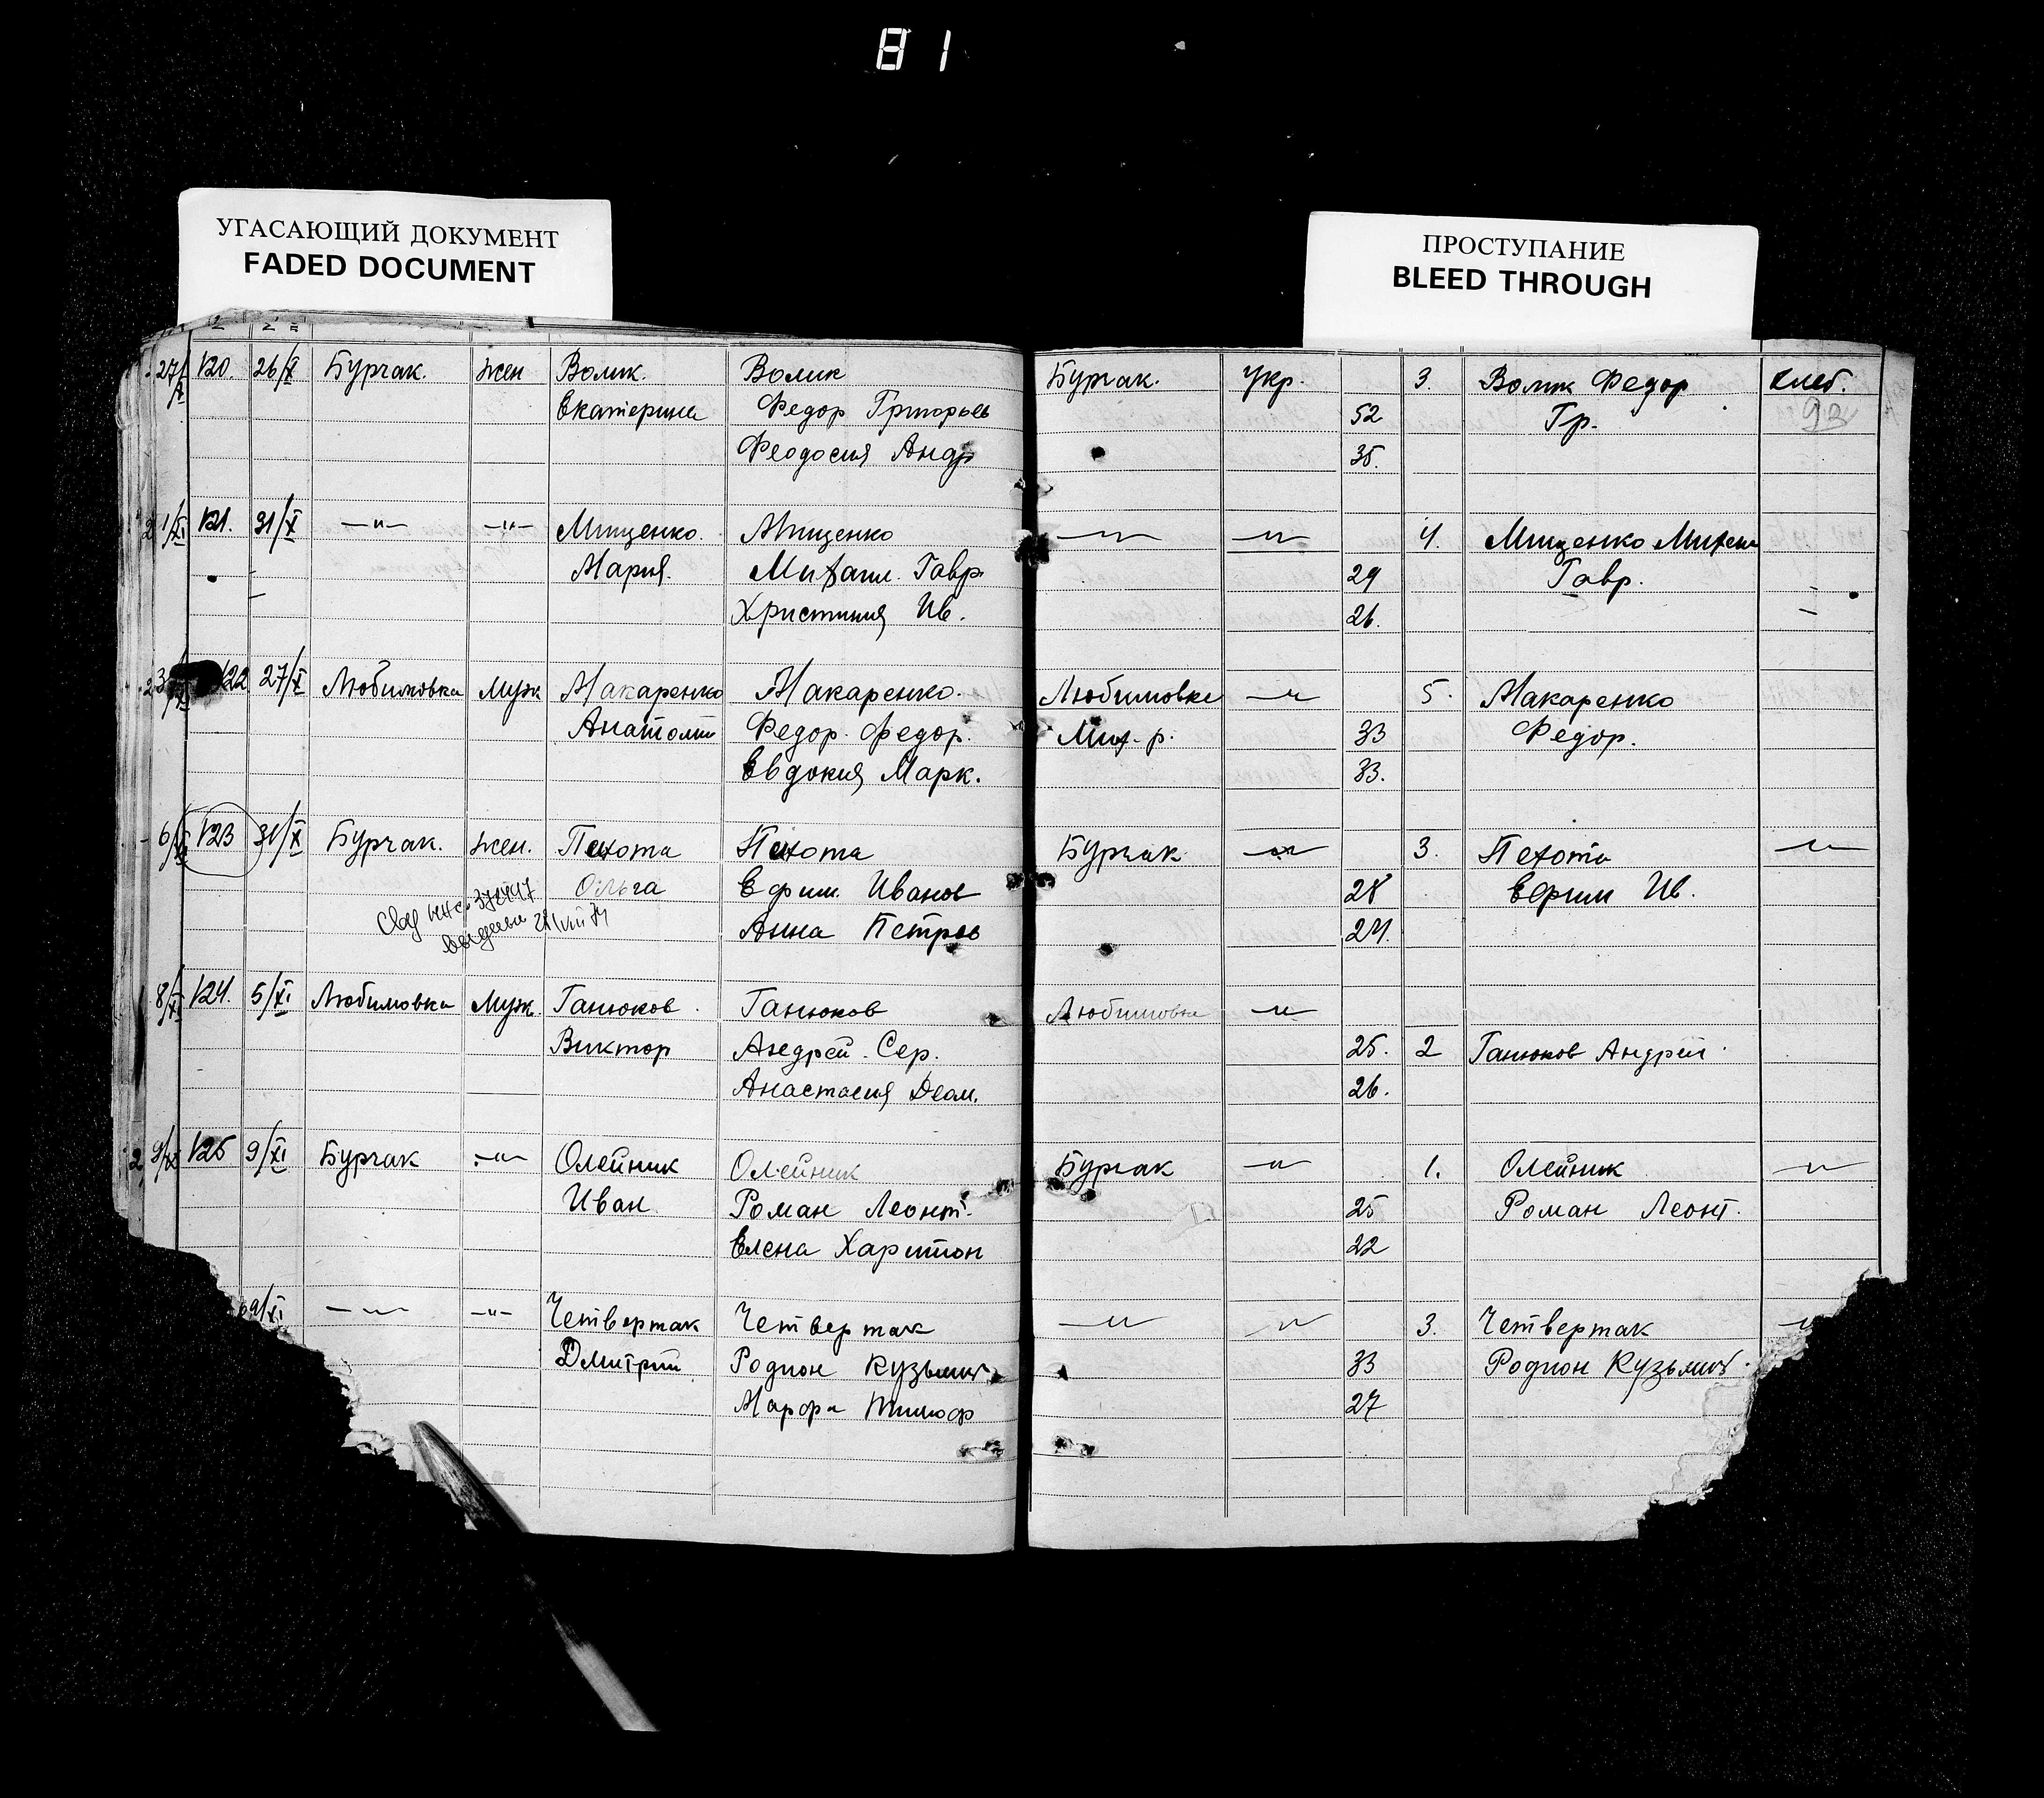 81
УГАСАЮЩИЙ ДОКУМЕНТ
FADED DOCUMENT
ПРОСТУПАНИЕ
BLEED THROUGH
27/X 120. 26/X Бурчак. жен Волик. Волик Бурчак. Укр. 3. Волик Федор хлеб.
Екатерина Федор Григорьев 52 Гр. 93
Феодосия Андр 35.
1/XI 121. 31/X —"— —"— Мищенко. Мищенко —"— —"— 4. Мищенко Михаил
Мария. Михаил. Гавр 29 Гавр.
Христиния Ив. 26.
122 27/X Любимовка Муж Макаренко Макаренко. Любимовка —"— 5. Макаренко
Анатолий Федор. Федор. Мих-р. 33 Федор.
Евдокия Марк. 33.
6/XI 123 31/X Бурчак. жен. Пехота Пехота Бурчак —"— 3. Пехота —"—
Ольга Ефим. Иванов 28 Ефим Ив.
Анна Петров 24.
8/XI 124. 5/XI Любимовка Муж. Ганюков. Ганюков Любимовка —"—
Виктор Андрей. Сер. 25. 2 Ганюков Андрей.
Анастасия Дем. 26.
9/XI 125 9/XI Бурчак —"— Олейник Олейник Бурчак —"— 1. Олейник —"—
Иван. Роман Леонт. 25 Роман Леонт.
Елена Харитон 22
9/XI —"— —"— Четвертак Четвертак —"— —"— 3. Четвертак —"—
Дмитрий Родион Кузьмич 33 Родион Кузьмич.
Марфа Тимоф 27